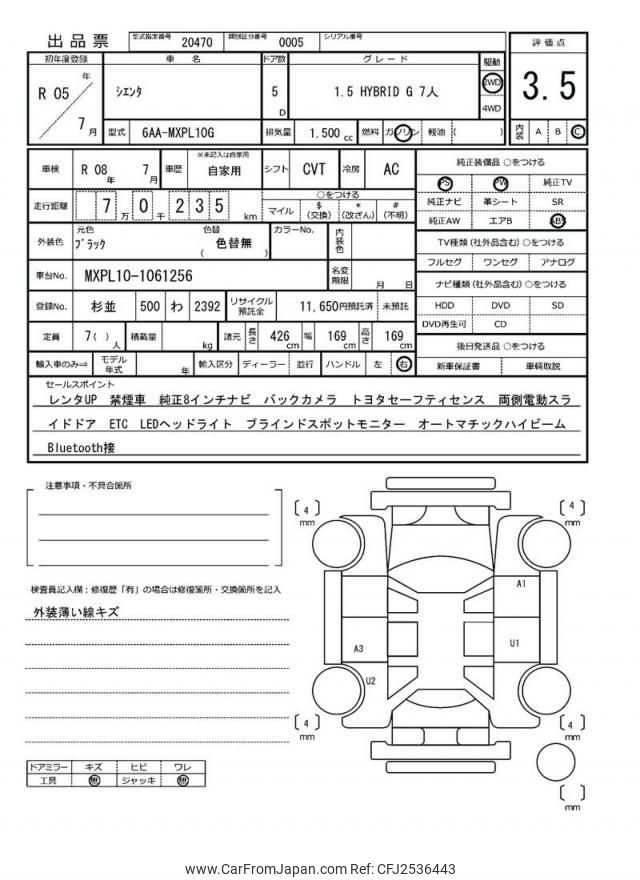 出品票
型式指定番号 20470 類別区分番号 0005 シリアル番号
初年度登録 車 名 ドア数 グレード 駆動 評価点
R 05 年 7 月
シエンタ
5 D
1.5 HYBRID G 7人
2WD
4WD
3.5
型式 6AA-MXPL10G 排気量 1,500 cc 燃料 ガソリン 軽油 ( )
内装 A B C
車検 R 08 年 7 月 車歴 ※未記入は自家用 自家用 シフト CVT 冷房 AC
純正装備品 ○をつける
PS PW 純正TV
純正ナビ 革シート SR
純正AW エアB ABS
走行距離 7 万 0 千 2 3 5 km
○をつける
マイル $ (交換) * (改ざん) # (不明)
TV種類 (社外品含む) ○をつける
フルセグ ワンセグ アナログ
外装色 元色 ブラック 色替 ( 色替無 ) カラーNo. 内装色
車台No. MXPL10-1061256 名変期限 月 日
ナビ種類 (社外品含む) ○をつける
HDD DVD SD
DVD再生可 CD
登録No. 杉並 500 わ 2392 リサイクル預託金 11,650円預託済 未預託
定員 7( ) 人 積載量 kg 諸元 長さ 426 cm 幅 169 cm 高さ 169 cm
後日発送品 ○をつける
新車保証書 車輌取説
輸入車のみ⇒ モデル年式 年 輸入区分 ディーラー 並行 ハンドル 左 右
セールスポイント
レンタUP 禁煙車 純正8インチナビ バックカメラ トヨタセーフティセンス 両側電動スラ
イドドア ETC LEDヘッドライト ブラインドスポットモニター オートマチックハイビーム
Bluetooth接
注意事項・不具合箇所
検査員記入欄：修復歴「有」の場合は修復箇所・交換箇所を記入
外装薄い線キズ
ドアミラー キズ ヒビ ワレ
工具 無 ジャッキ 無
4
mm
4
mm
A1
A3
U1
U2
4
mm
4
mm
mm
www.CarFromJapan.com Ref: CFJ2536443